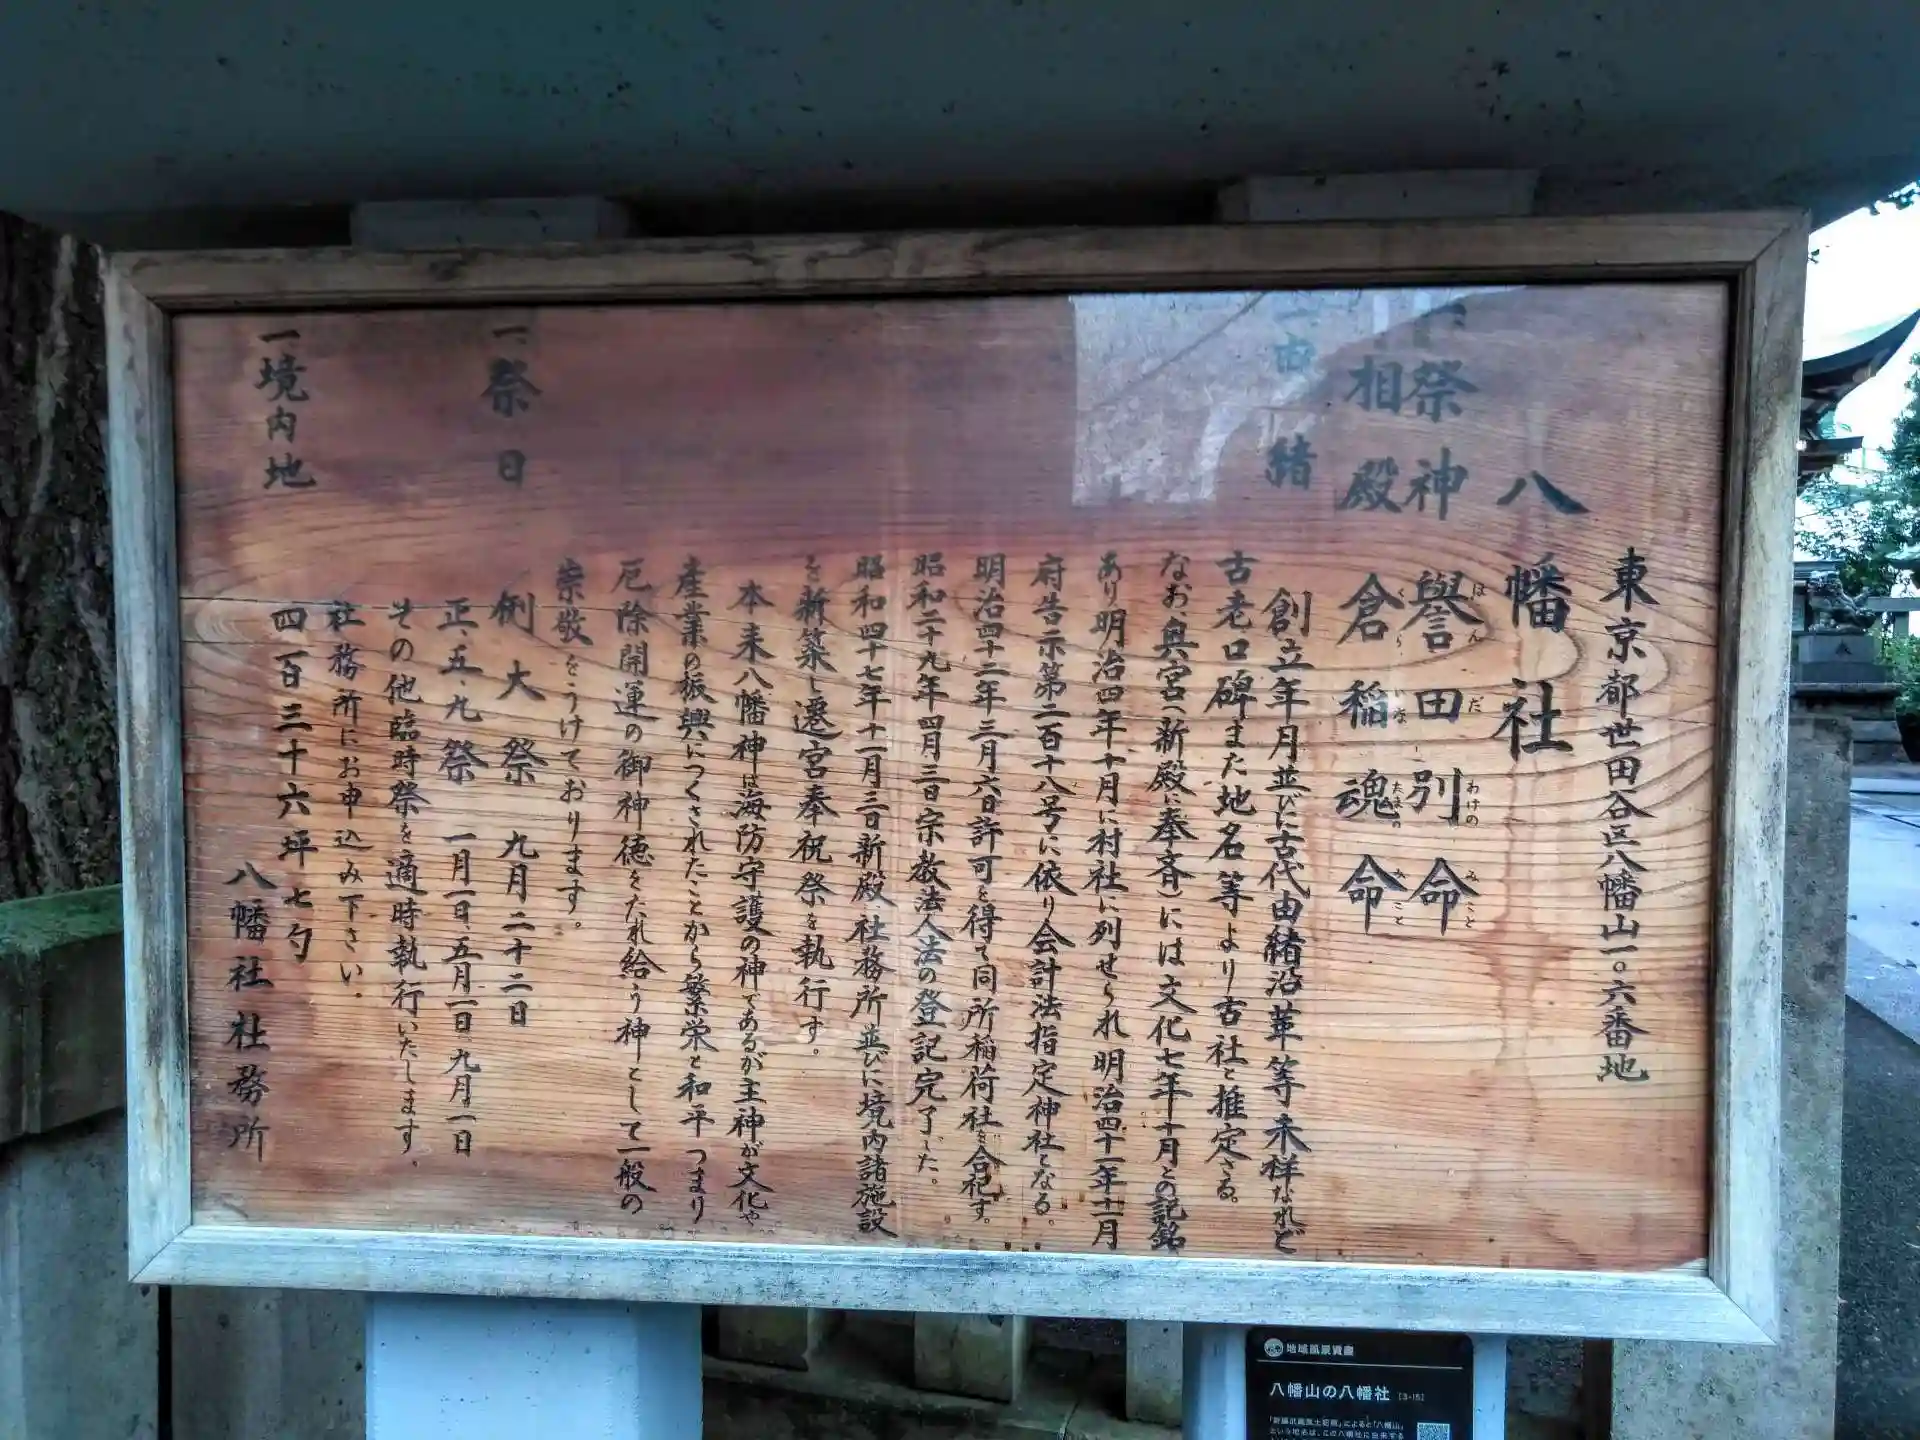 東京都世田谷区八幡山一〇六番地
八幡社
一、祭神 譽田別命
ほんだわけのみこと
相殿 倉稲魂命
くらいなたまのみこと
一、由緒
創立年月並びに古代由緒沿革等未祥なれど
古老口碑また地名等より古社と推定さる。
なお奥宮(新殿に奉斎)には文化七年十月との記銘
あり明治四年十月に村社に列せられ明治四十一年十一月
府告示第二百十八号に依り会計法指定神社となる。
明治四十二年三月六日許可を得て同所稲荷社を合祀す。
昭和二十九年四月三日宗教法人法の登記完了した。
昭和四十七年十一月三日新殿、社務所並びに境内諸施設
を新築し遷宮奉祝祭を執行す。
本来八幡神は海防守護の神であるが主神が文化や
産業の振興につくされたことから繁栄と和平つまり
厄除開運の御神徳をたれ給う神として一般の
崇敬をうけております。
一、祭日
例大祭 九月二十二日
正、五、九祭 一月一日、五月一日、九月一日
その他臨時祭を適時執行いたします。
社務所にお申込み下さい。
一、境内地
四百三十六坪七勺
八幡社社務所
地域風景資産
八幡山の八幡社 [3-15]
「新編武蔵風土記稿」によると「八幡山」
という地名は、この八幡社に由来する